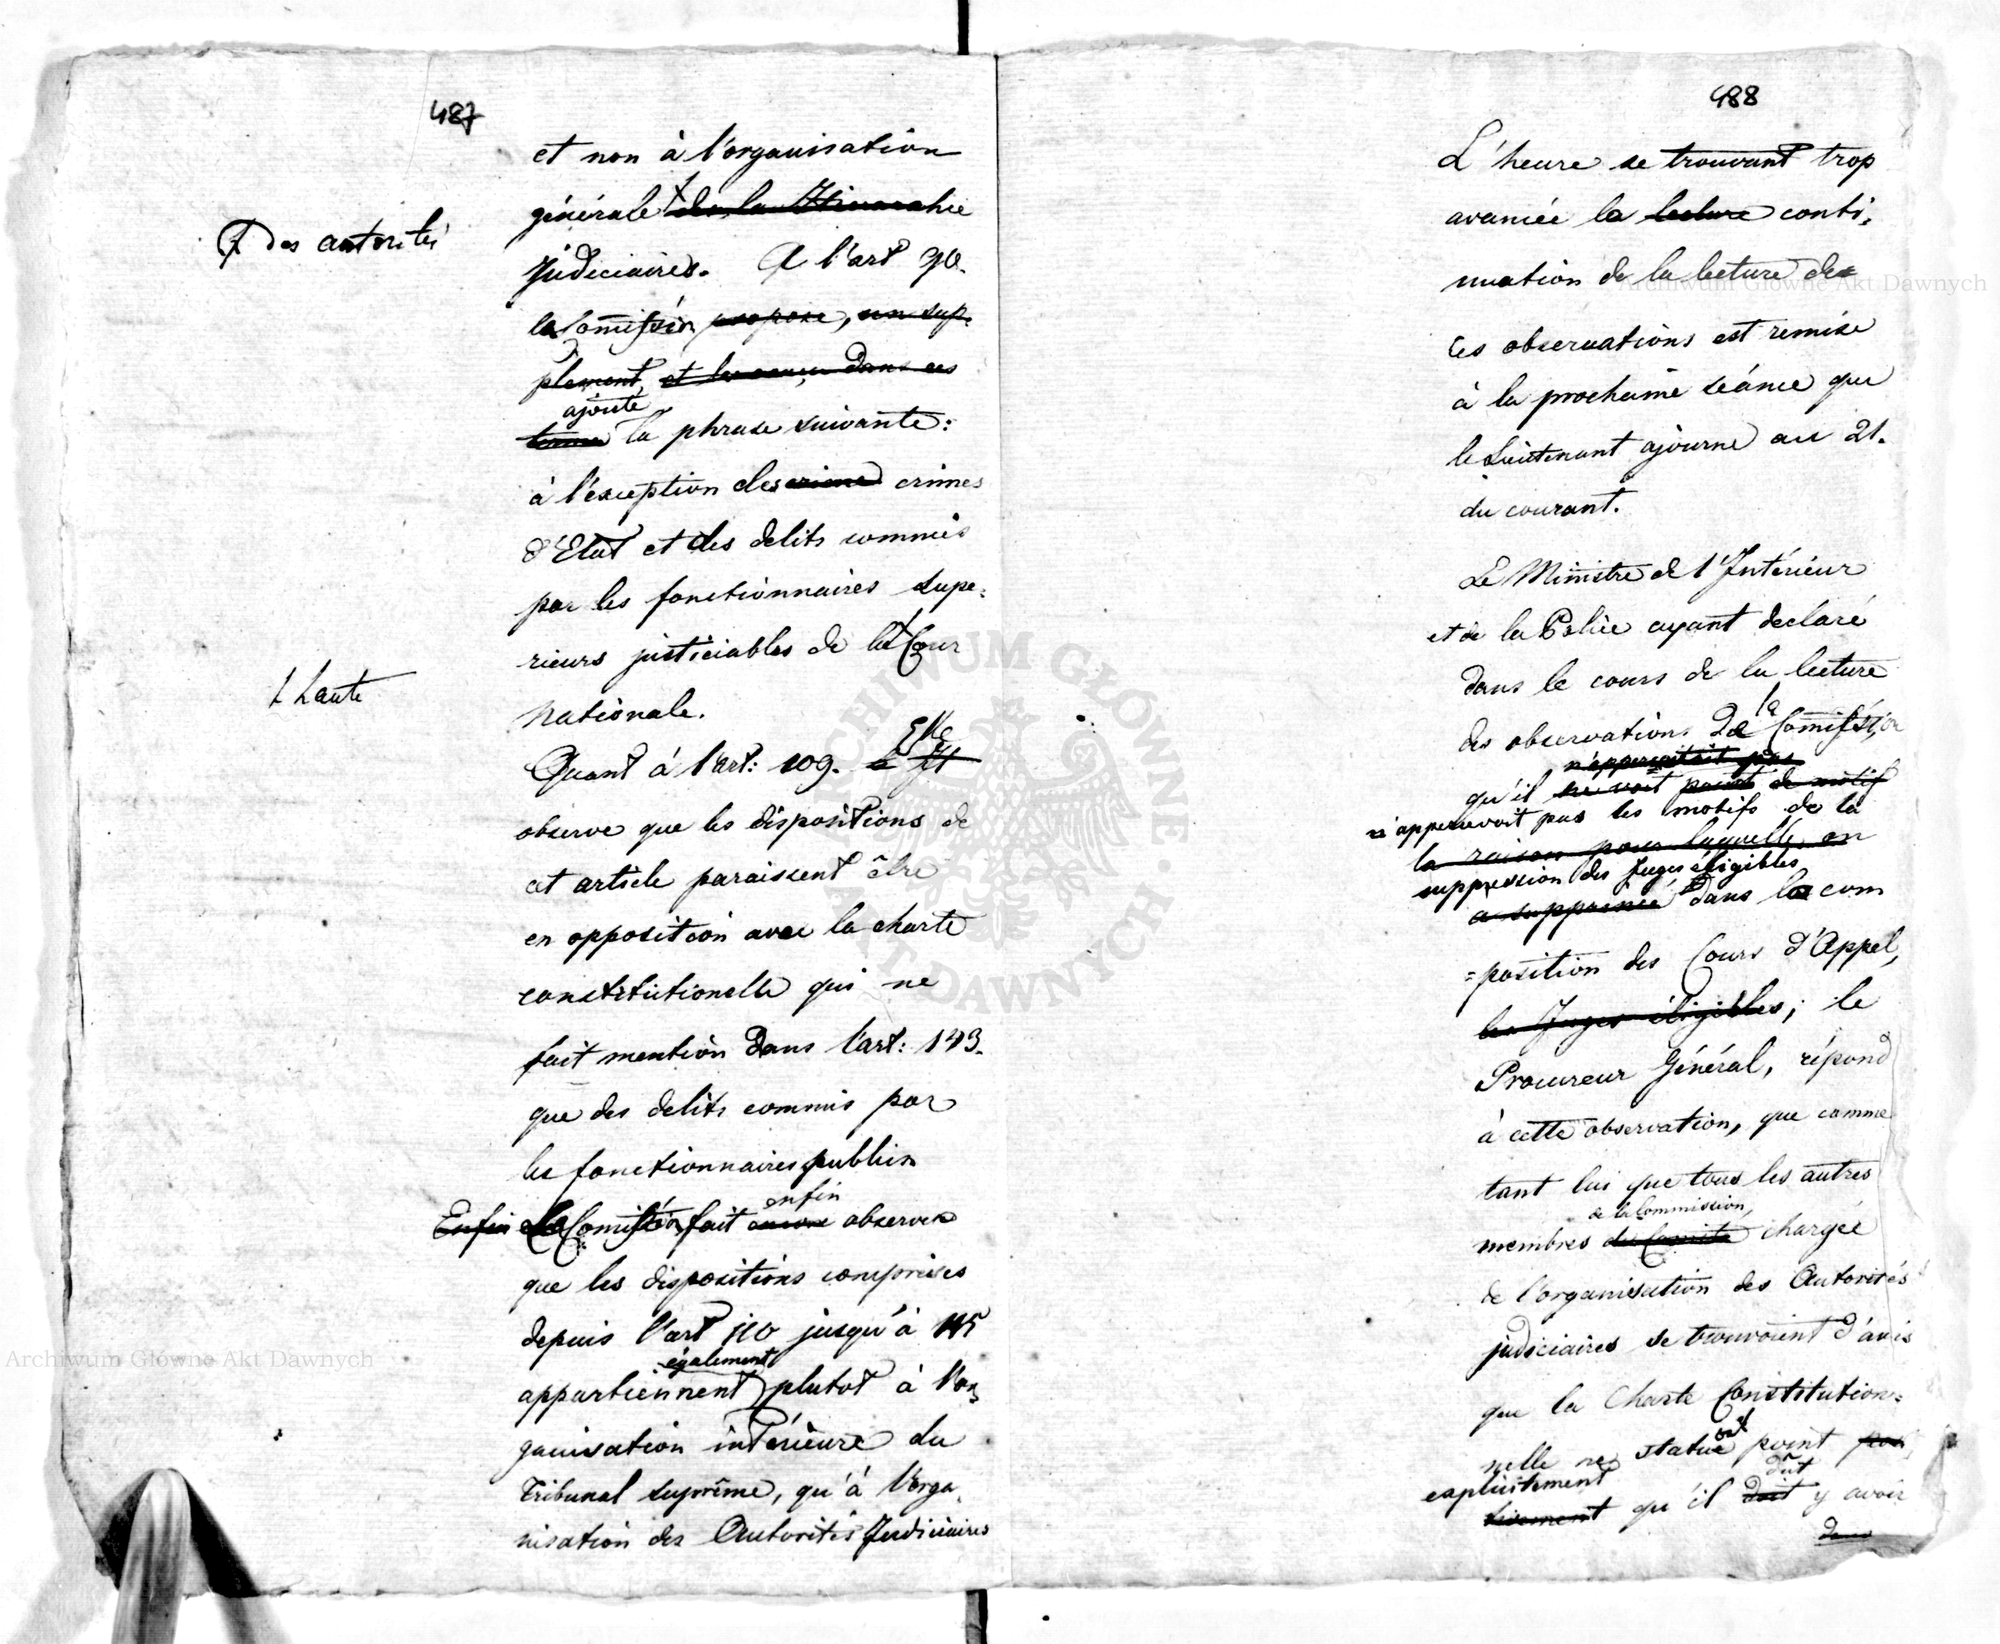 487
et non à l'organisation
générale de la Hierarchie
┼ des autorités
judiciaires. A l'art 90.
la Comission propose, un sup-
plement, et les dans ces
ajoute
la phrase suivante:
à l'éxception des crimes crimes
d'Etat et des delits commis
par les fonctionnaires supe-
rieurs justiciables de la Cour
┼ haute
nationale.
Elle
Quant à l'art: 109.
observe que les dispositions de
cet article paraissent être
en opposition avec la charte
constitutionelle qui ne
fait mention dans l'art: 143.
que des delits commis par
les fonctionnaires publics
enfin
Enfin La Comission fait encore observer
que les dispositions comprises
depuis l'art 110 jusqu'à 115
également
appartiennent plutot à l'or-
ganisation intérieure du
Tribunal suprême, qu'à l'orga-
nisation des Autorités Judiciaires
488
L'heure se trouvant trop
avancée la lecture conti-
nuation de la lecture de
ces observations est remise
à la prochaine séance que
le Lieutenant ajourne au 21.
du courant.
Le Ministre de l'Intérieur
et de la Police ayant declaré
dans le cours de la lecture
la
des observations de Comission
n'appercevait pas
qu'il ne voit point de motif
n'appercevoit pas les motifs de la
la raison pour laquelle on
suppression des Juges éligibles
a supprimé dans la com
=position des Cours d'Appel,
les Juges éligibles; le
Procureur Général, répond
à cette observation, que comme
tant lui que tous les autres
de la Commission,
membres du Comité chargée
de l'organisation des Autorités
judiciaires se trouvoient d'avis
que la Charte Constitution-
nelle ne statue point pas
explicitement dût
qu'il doit y avoir
dans
Archiwum Główne Akt Dawnych
Archiwum Główne Akt Dawnych
ARCHIWUM GŁÓWNE · AKT DAWNYCH ·